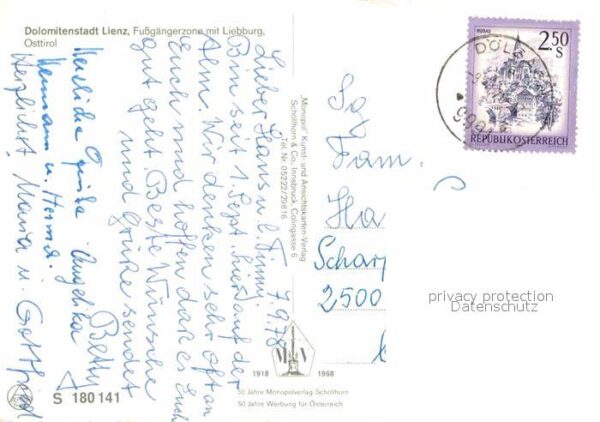 Dolomitenstadt Lienz, Fußgängerzone mit Liebburg,
Osttirol
7.9.78
Lieber Hans u. l. Finny
Bin seit 1. Sept. hier auf der
Alm. Wir denken sehr oft an
Euch und hoffen daß es Euch
gut geht. Beste Wünsche
und Grüße sendet
Betty
Herzliche Grüße Angelika
Hermann u. Herma.
Herzlichst, Maria u. Gottfried
"Monopol" Kunst- und Ansichtskarten-Verlag
Schöllhorn & Co. Innsbruck, Colingasse 6
Tel. Nr. 05222/29816
M V
1918 1968
50 Jahre Monopolverlag Schöllhorn
50 Jahre Werbung für Österreich
S 180 141
Fam.
Ha
Schar
2500
RODAS
2.50
S
REPUBLIK ÖSTERREICH
DÖLSACH
privacy protection
Datenschutz